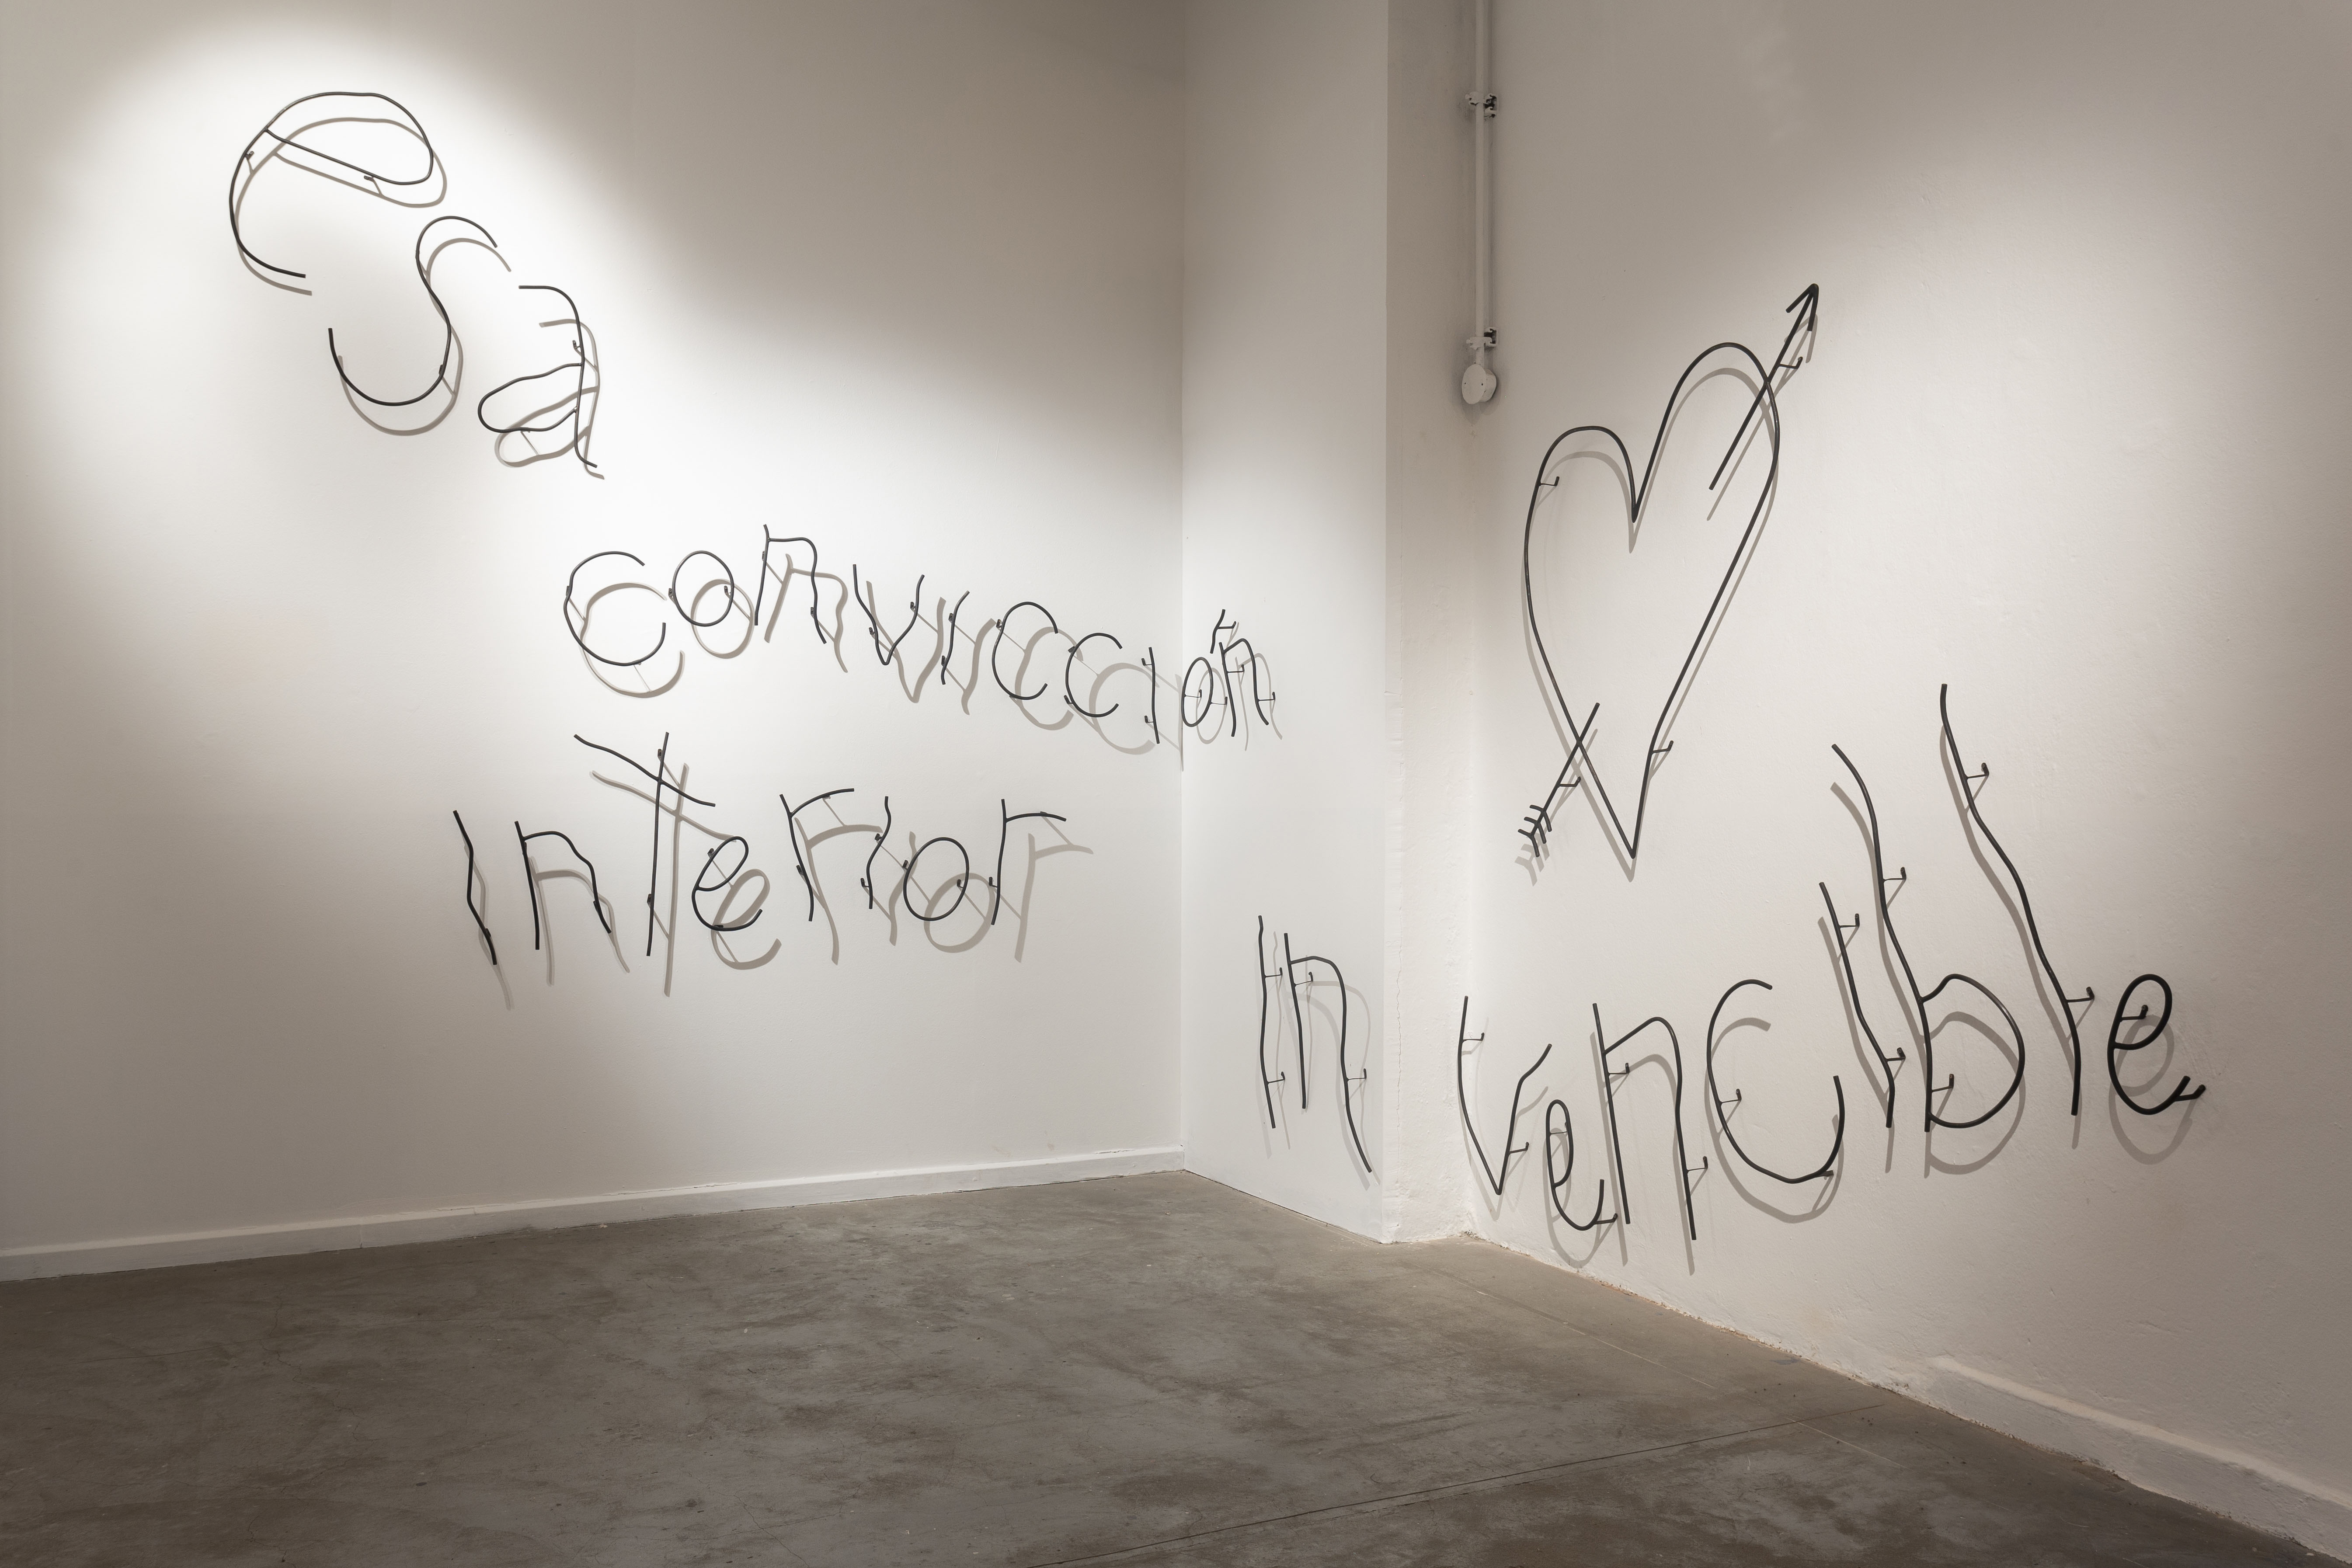 esa
convicción
interior
invencible